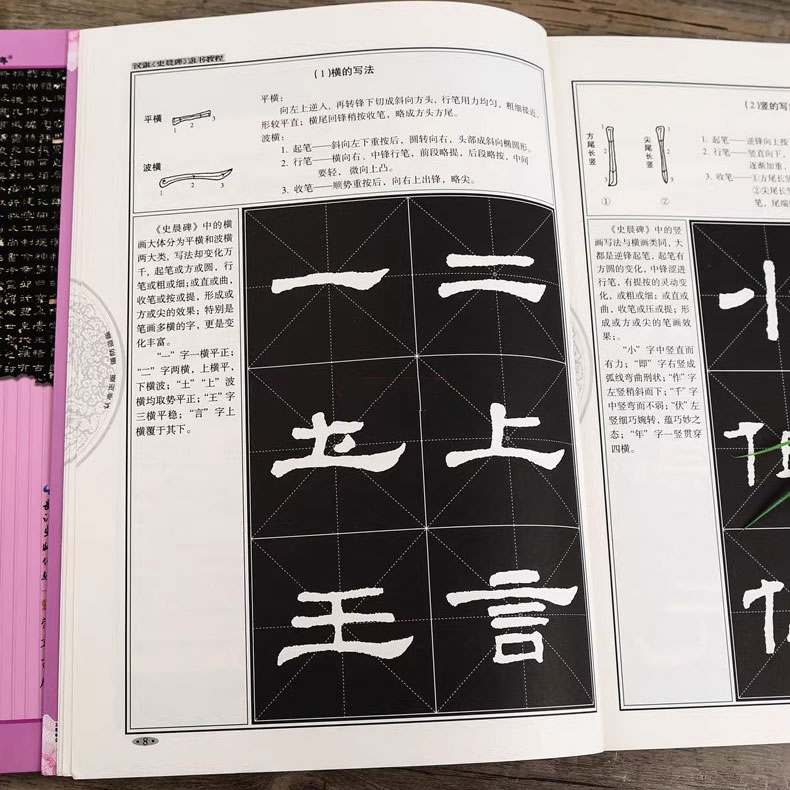 汉隶《史晨碑》隶书教程
(1)横的写法
平横
1 2 3
波横
1 2 3
平横：
向左上逆入，再转锋下切成斜向方头，行笔用力均匀，粗细接近，
形较平直；横尾回锋稍按收笔，略成方头方尾。
波横：
1. 起笔——斜向左下重按后，圆转向右，头部成斜向椭圆形。
2. 行笔——横向右、中锋行笔，前段略提，后段略按，中间
要轻，微向上凸。
3. 收笔——顺势重按后，向右上出锋，略尖。
《史晨碑》中的横
画大体分为平横和波横
两大类，写法却变化万
千，起笔或方或圆，行
笔或粗或细；或直或曲，
收笔或按或提，形成或
方或尖的效果；特别是
笔画多横的字，更是变
化丰富。
“一”字一横平正；
“二”字两横，上横平，
下横波；“土”“上”波
横均取势平正；“王”字
三横平稳；“言”字上
横覆于其下。
一 二
土 上
王 言
8
(2)竖的写
方尾长竖
1
2
3
①
尖尾长竖
1
2
3
②
1. 起笔——逆锋向上
2. 行笔——竖直向下，
逐渐加重，
3. 收笔——①方尾长竖
②尖尾长竖
笔，尾端
《史晨碑》中的竖
画写法与横画类同，大
都是逆锋起笔，起笔有
方圆的变化，中锋涩进
行笔，有提按的灵动变
化，或粗或细；或直或
曲，收笔或压或提；形
成或方或尖的笔画效
果；。
“小”字中竖直而
有力；“即”字右竖成
弧线弯曲形状；“作”字
左竖稍斜而下；“千”字
中竖弯而不弱；“伏”左
竖细巧婉转，蕴巧妙之
态；“年”字一竖贯穿
四横。
小